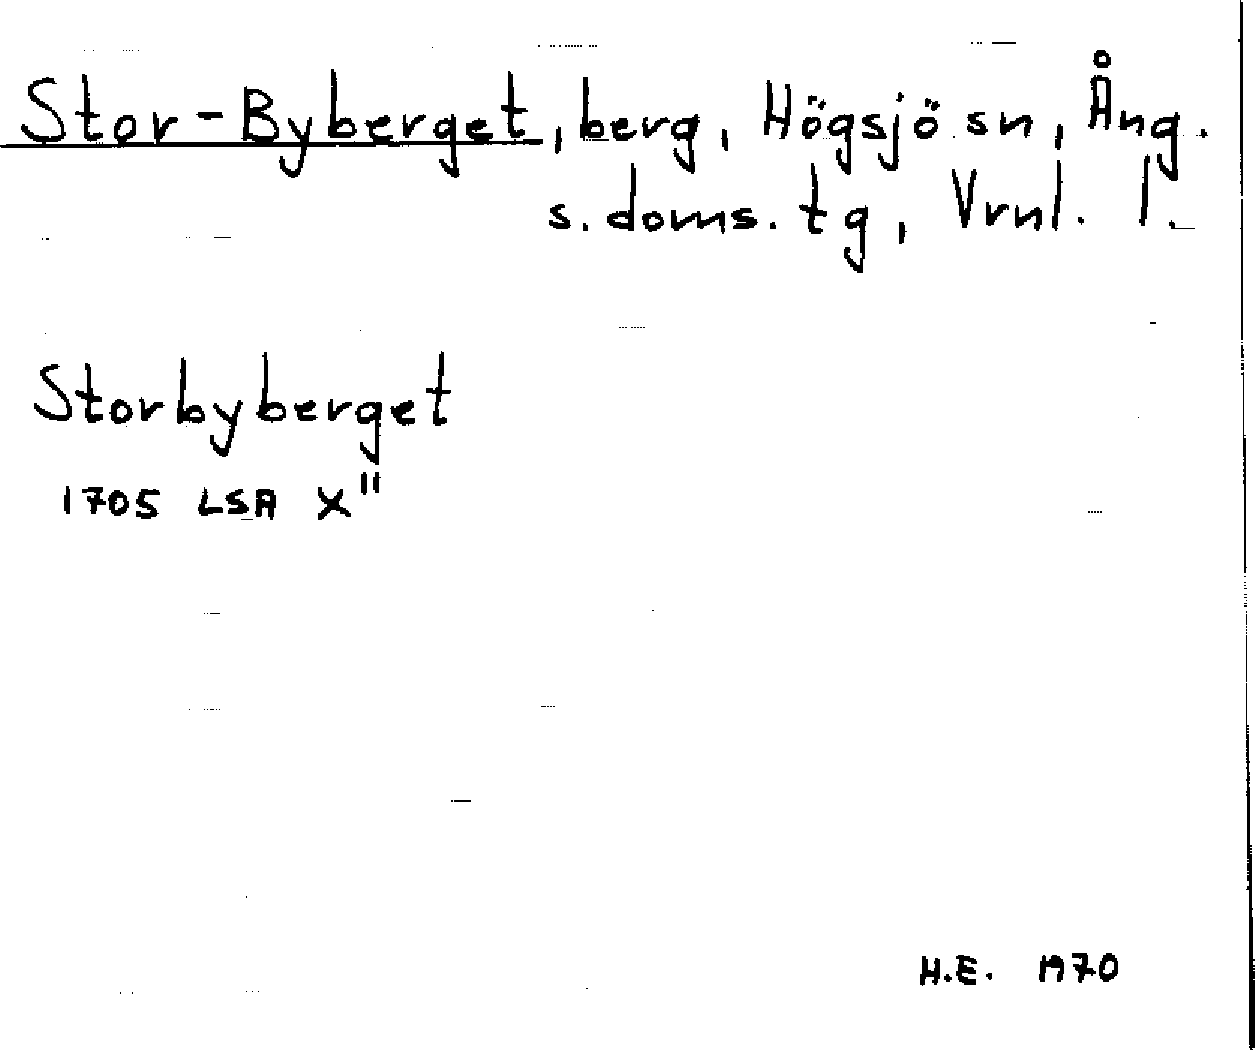 Stor-Byberget, berg, Högsjö sn, Ång.
s. doms. tg, Vrnl. l.
Storbyberget
1705 LSA X"
H.E. 1970